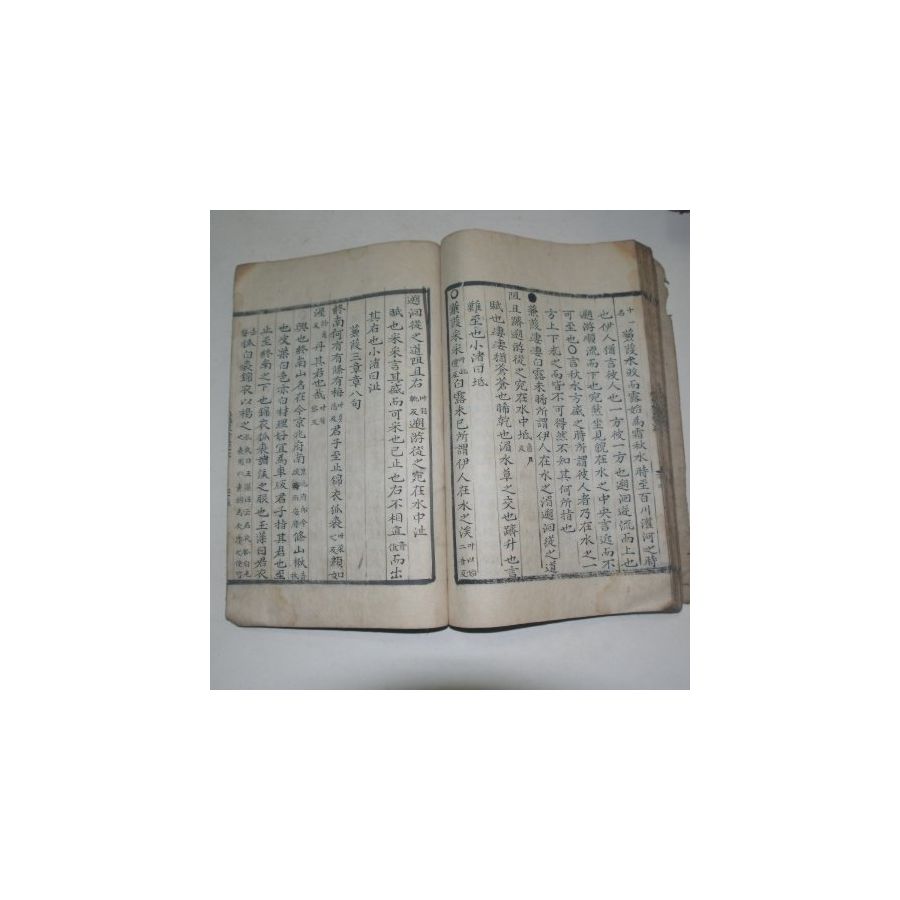 蒹葭未敗而露始爲霜秋水時至百川灌河之時
也伊人猶言彼人也一方彼一方也遡洄逆流而上也
遡游順流而下也宛然坐見貌在水之中央言近而不
可至也○言秋水方盛之時所謂彼人者乃在水之一
方上下求之而皆不可得然不知其何所指也
●蒹葭凄凄白露未晞所謂伊人在水之湄遡洄從之道
阻且躋遡游從之宛在水中坻
賦也凄凄猶蒼蒼也晞乾也湄水草之交也躋升也言
難至也小渚曰坻
○蒹葭采采白露未已所謂伊人在水之涘
遡洄從之道阻且右遡游從之宛在水中沚
賦也采采言其盛而可采也已止也右不相直而出
其右也小渚曰沚
蒹葭三章章八句
終南何有有條有梅君子至止錦衣狐裘顔如
渥丹其君也哉
興也終南山名在今京兆府南條山楸
也皮葉白色亦白材理好宜爲車版君子指其君也至
止至終南之下也錦衣狐裘諸侯之服也玉藻曰君衣
狐白裘錦衣以裼之